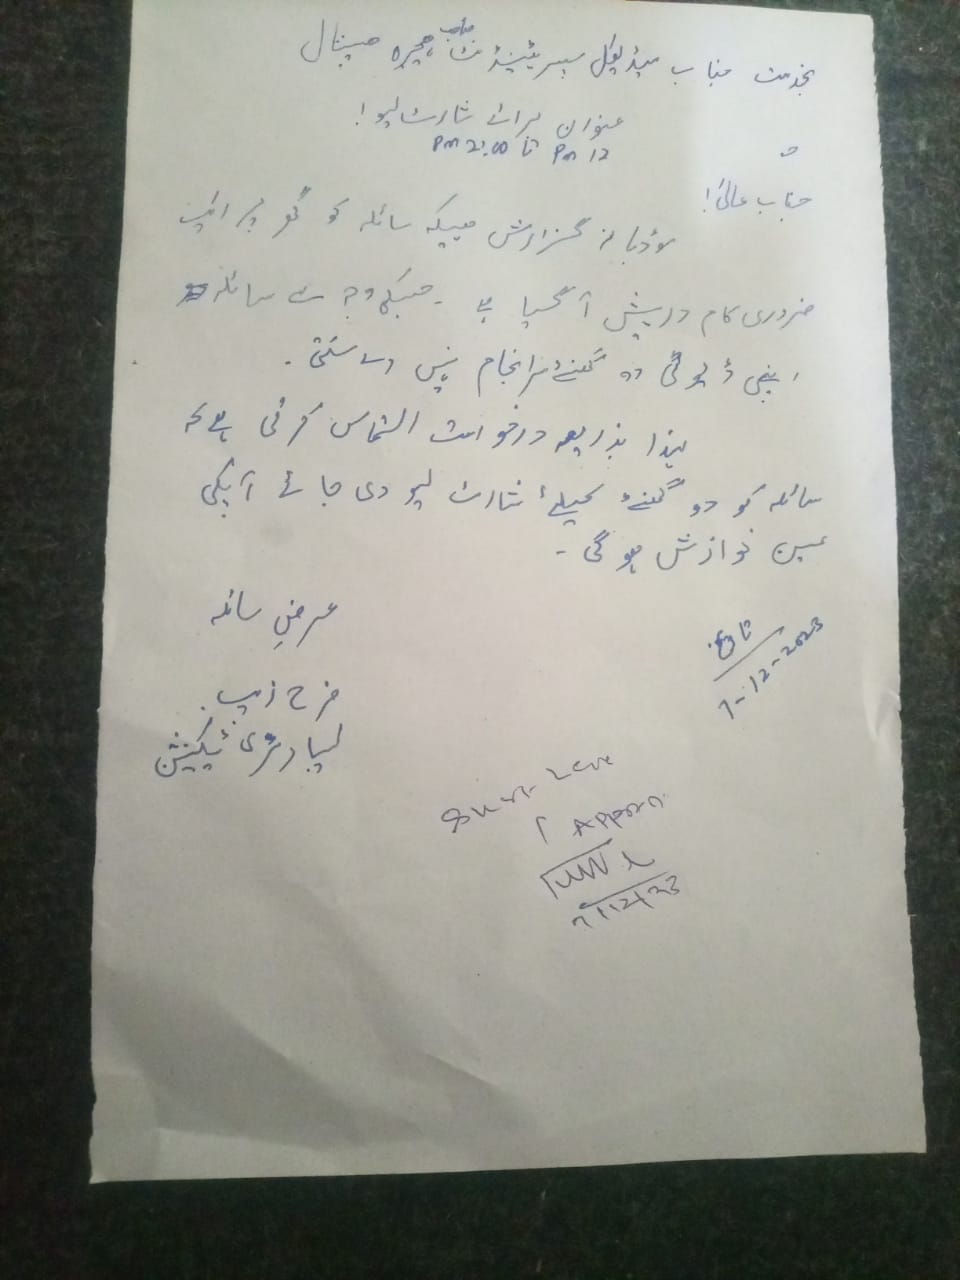 بخدمت جناب میڈیکل سپریٹینڈنٹ صاحب ہجیرہ ہسپتال
عنوان برائے شارٹ لیو!
12 Pm تا 2:00 Pm
جناب عالی!
مؤدبانہ گزارش ہیکہ سائلہ کو گھر پر ایک
ضروری کام درپیش آ گیا ہے ۔ جسکی وجہ سے سائلہ
اپنی ڈیوٹی دو گھنٹے سرانجام نہیں دے سکتی ۔
لہذا بذریعہ درخواست التماس کرتی ہے کہ
سائلہ کو دو گھنٹے کیلئے شارٹ لیو دی جائے آپکی
عین نوازش ہو گی ۔
عرضِ سائلہ
تاریخ
7-12-2023
فرح زیب
لیبارٹری ٹیکنیشن
Short Leve
7/12/23